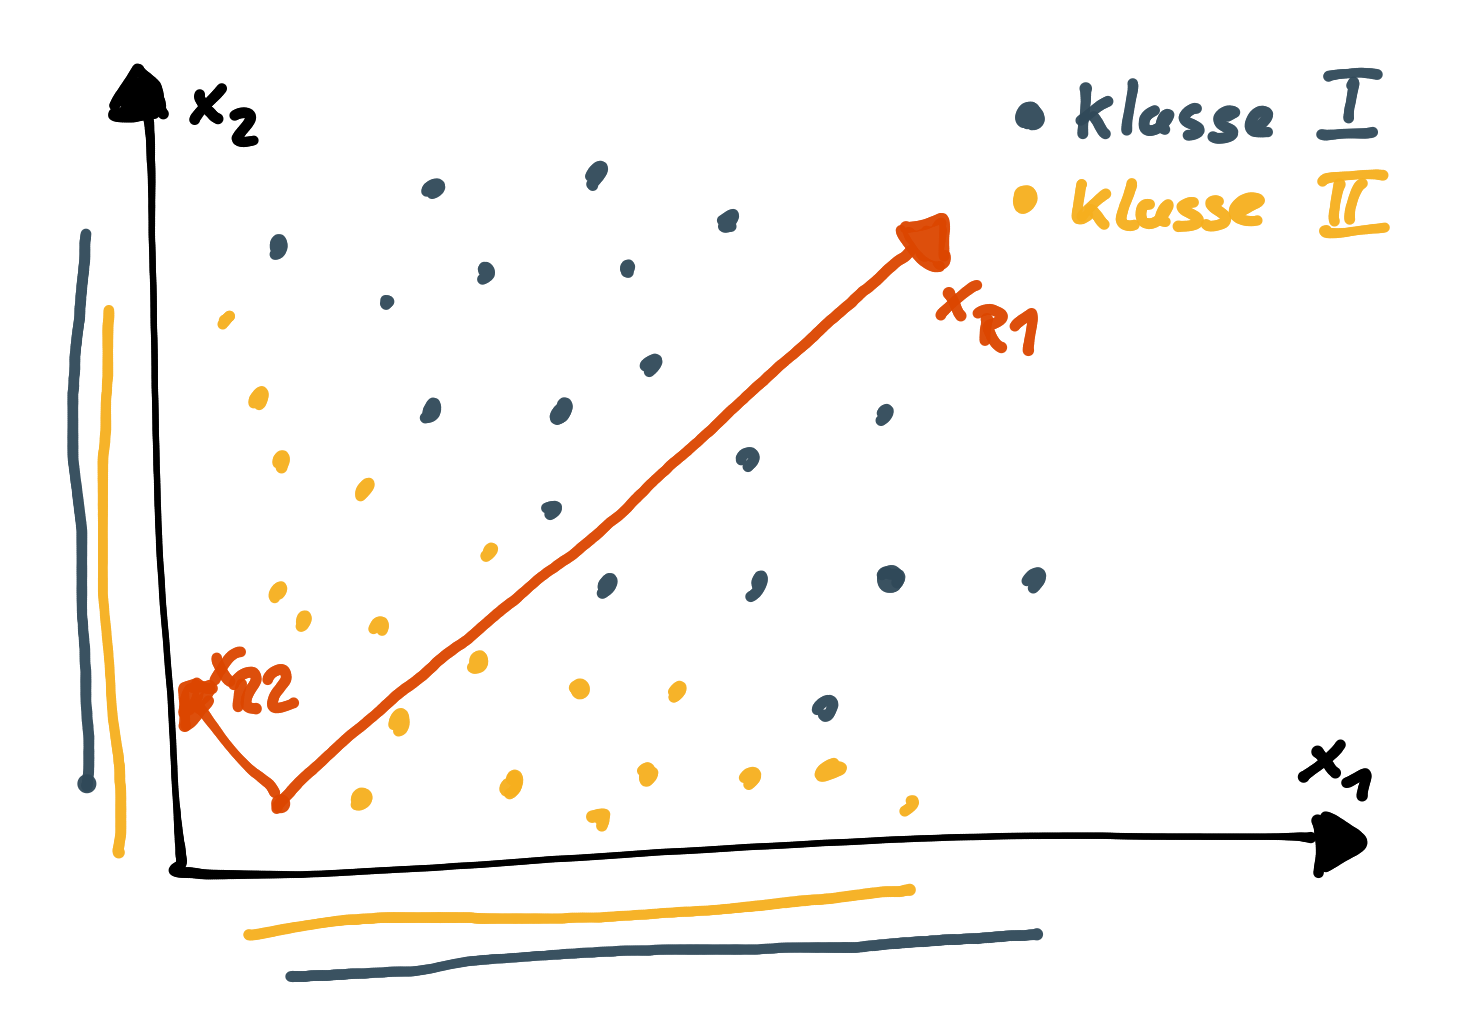 x2
Klasse I
Klasse II
xR1
xR2
x1